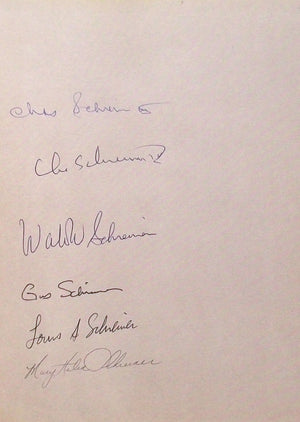 Chas Schreiner
Chas Schreiner IV
Walter Schreiner
Gus Schreiner
Louis A Schreiner
Mary Helen